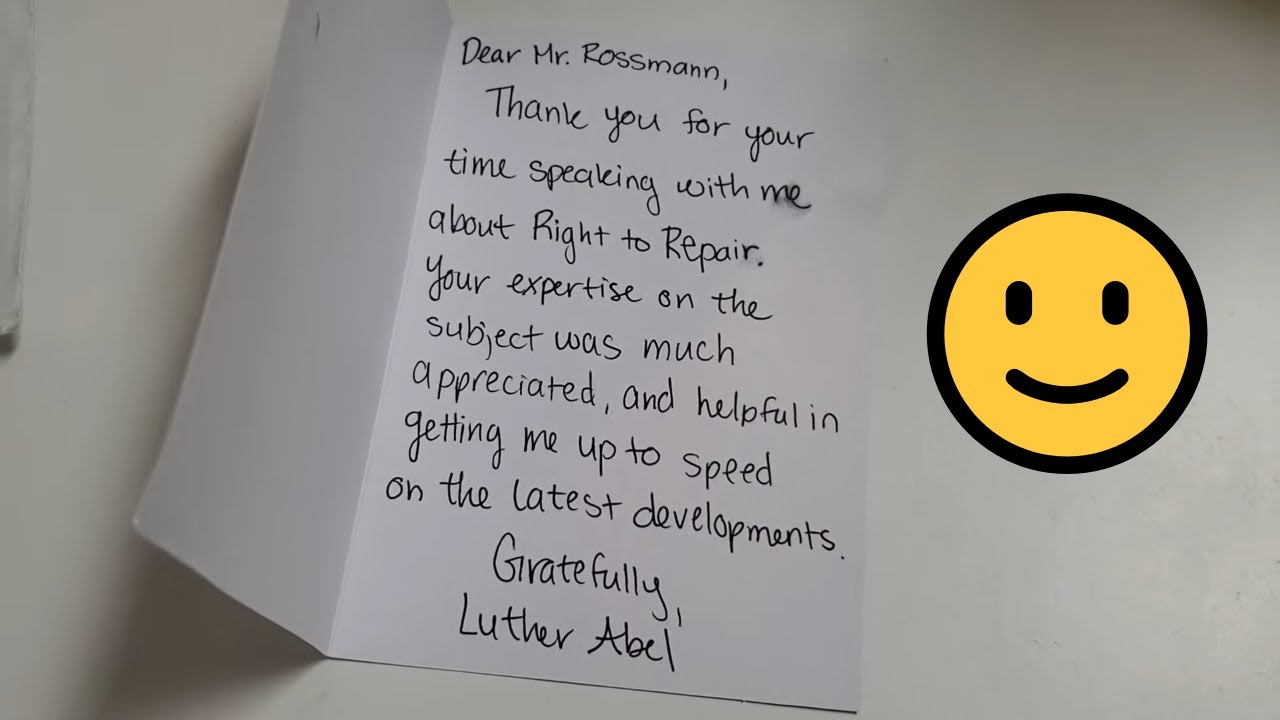 Dear Mr. Rossmann,
Thank you for your
time speaking with me
about Right to Repair.
Your expertise on the
subject was much
appreciated, and helpful in
getting me up to speed
on the latest developments.
Gratefully,
Luther Abel